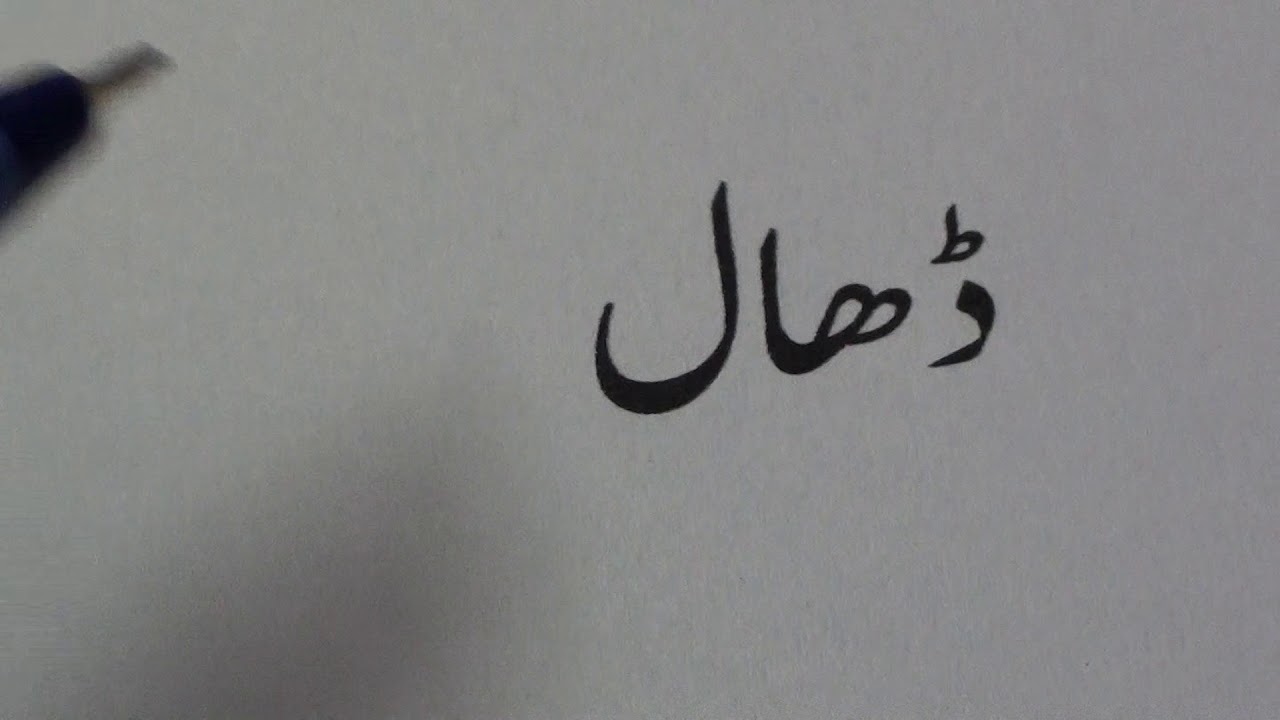 ڈھال